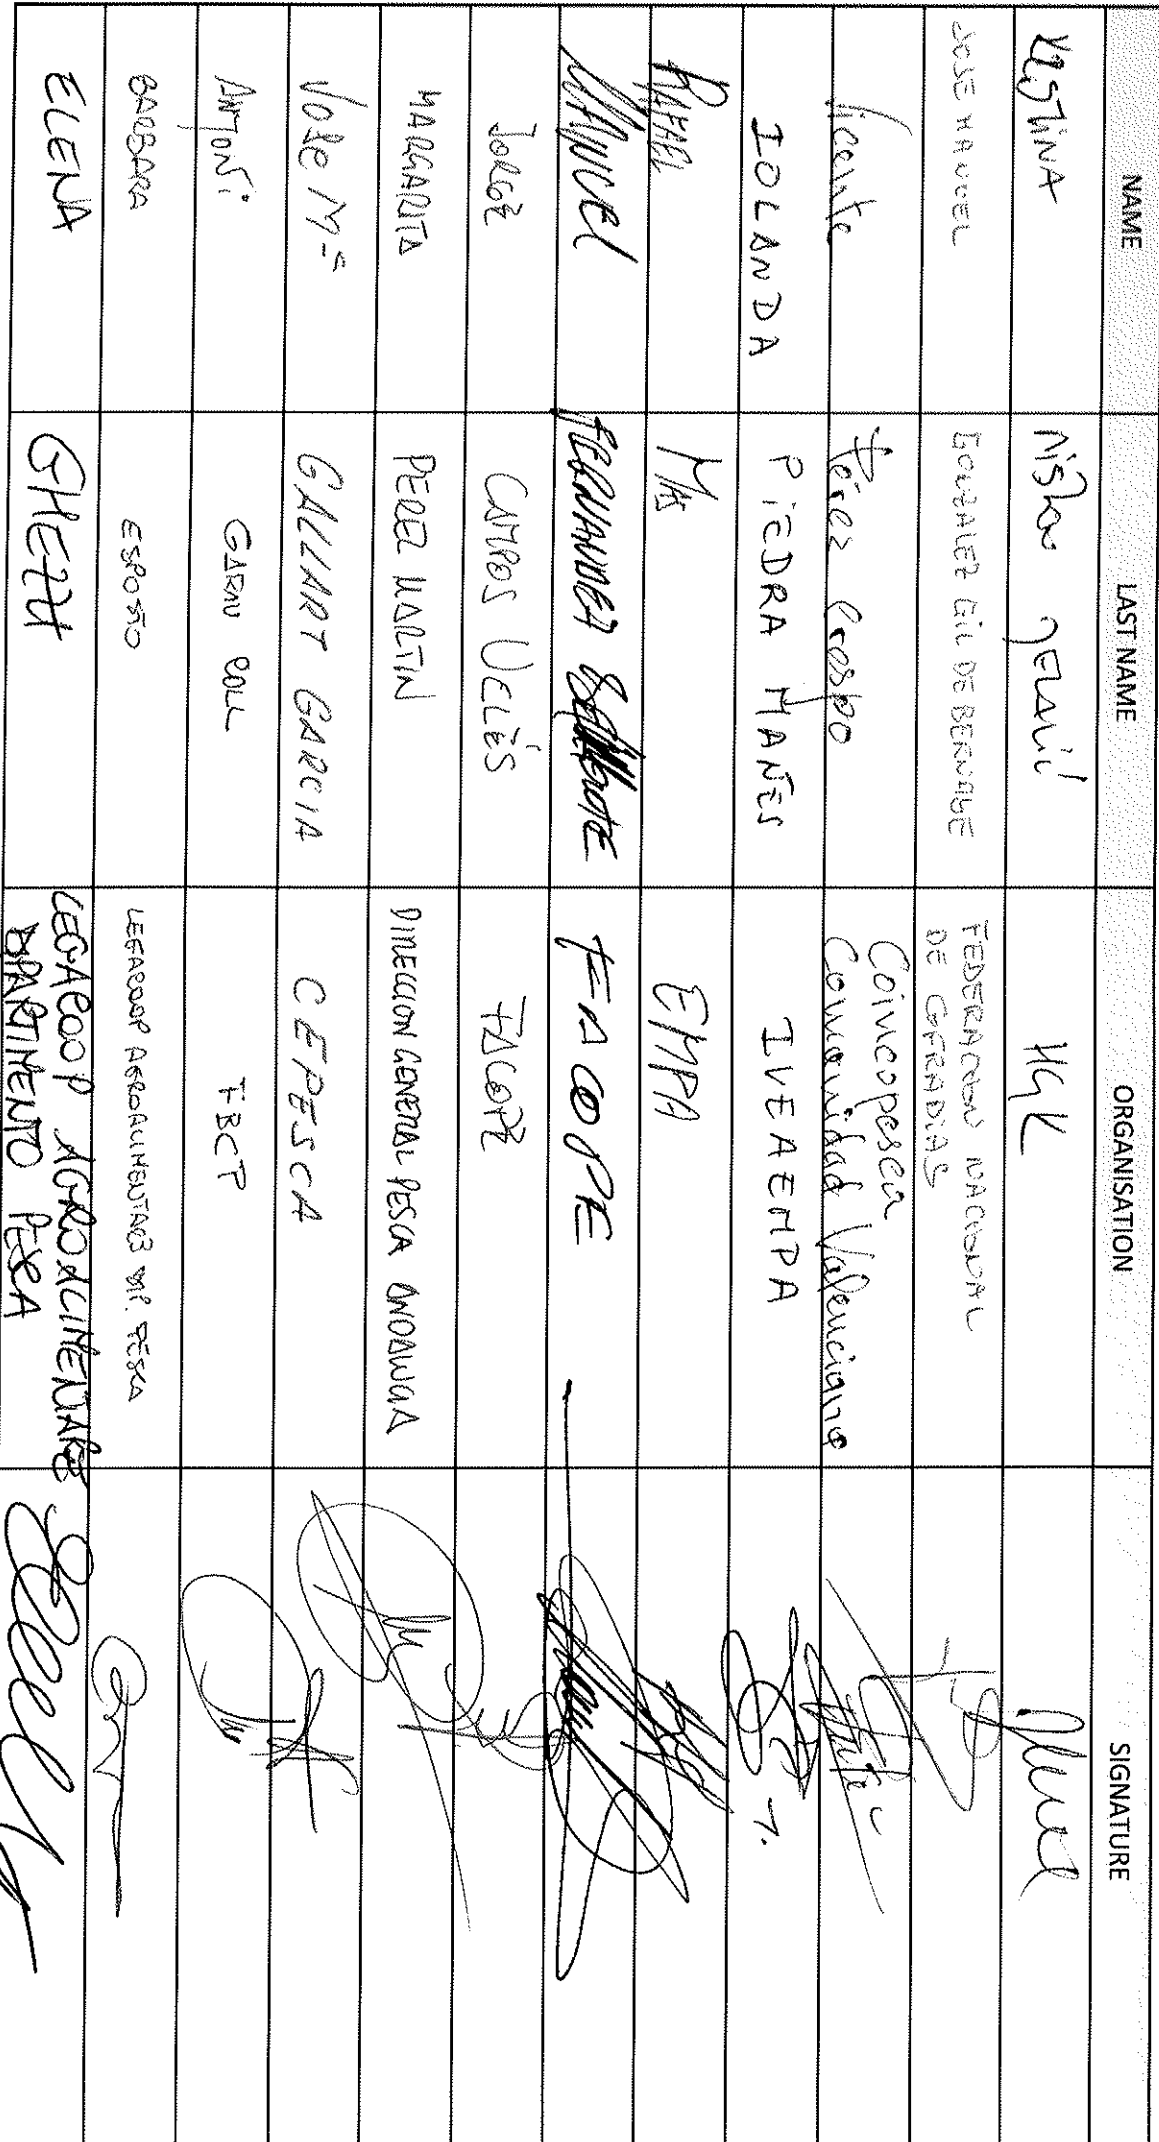 NAME LAST NAME ORGANISATION SIGNATURE
KRISTINA MIŠLOV JELAVIĆ HGK
JOSE MANUEL GONZALEZ GIL DE BERNABE FEDERACION NACIONAL
DE COFRADIAS
Vicente Pérez Crespo Coincopesca
Comunidad Valenciana
IOLANDA PIEDRA MAÑES IVEAEMPA
RAFAEL MAS EMPA
MANUEL FERNANDEZ FACOPE
JORGE CAMPOS UCLÈS FACOPE
MARGARITA PEREZ MARTIN DIRECCION GENERAL PESCA ANDALUCIA
JOSE Mª GALLART GARCIA CEPESCA
ANTONI GARAU COLL FBCP
BARBARA ESPOSITO LEGACOOP AGROALIMENTARE DIP. PESCA
ELENA GHEZZI LEGACOOP AGROALIMENTARE
DIPARTIMENTO PESCA